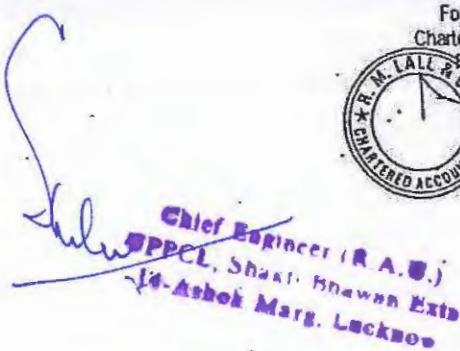 Fo
Charte
R. M. LALL &
CHARTERED ACCOU
Chief Engineer (R.A.U.)
UPPCL, Shakti Bhawan Extn
14-Ashok Marg, Lucknow